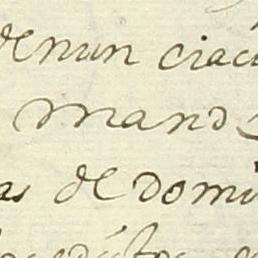 denun ciaci
mand
as de domi